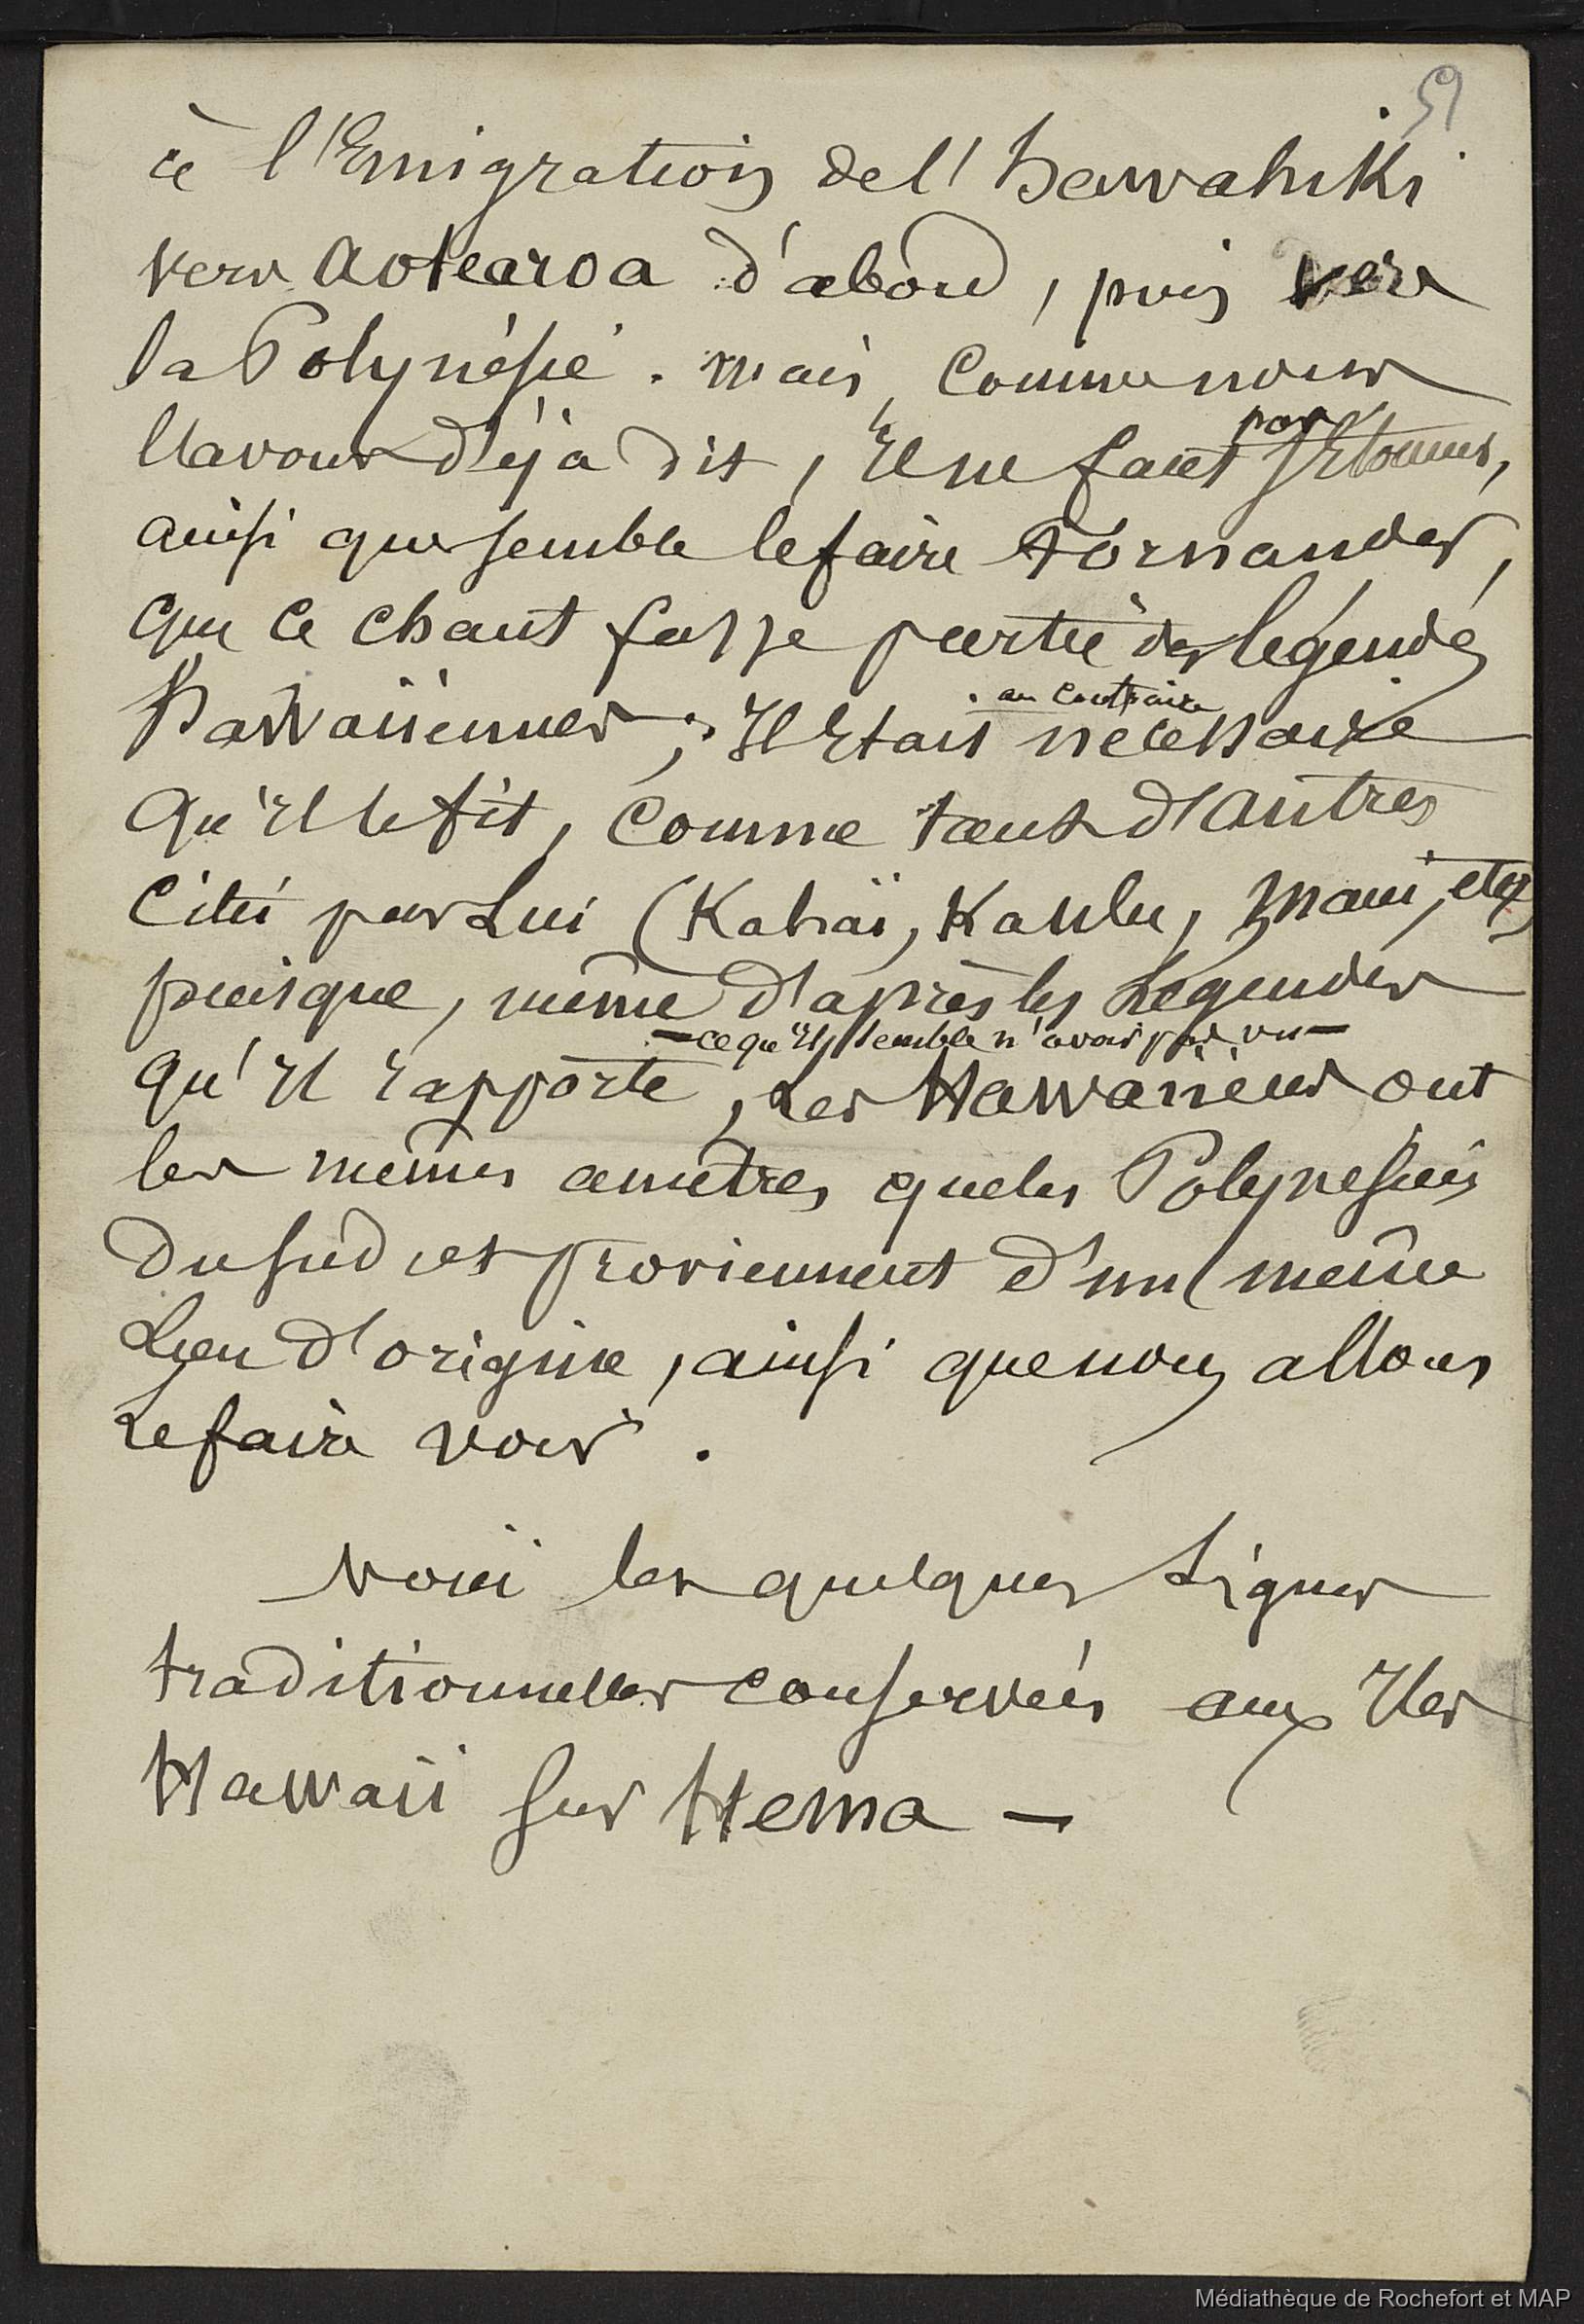 51
à l'Emigration de l'hawahiki
vers Aotearoa d'abord, puis vers
la Polynésie. mais, comme nous
l'avons déjà dit, il ne faut pas s'Etonner,
ainsi que semble le faire Fornander,
que ce chant fasse partie des légendes
hawaiiennes ; Il Etait au contraire nécessaire
qu'il le fit, comme tant d'autres
cités par Lui (Kahaï, Kaulu, Maui, etc)
puisque, même d'après les Légendes
qu'il rapporte, — ce qu'il semble n'avoir pas vu —
Les Hawaiiens ont
les mêmes ancêtres que les Polynésiens
du sud et proviennent d'un même
Lieu d'origine, ainsi que nous allons
Le faire voir.
Voici les quelques Lignes
traditionnelles conservées aux Iles
Hawaii sur Hema —
Médiathèque de Rochefort et MAP